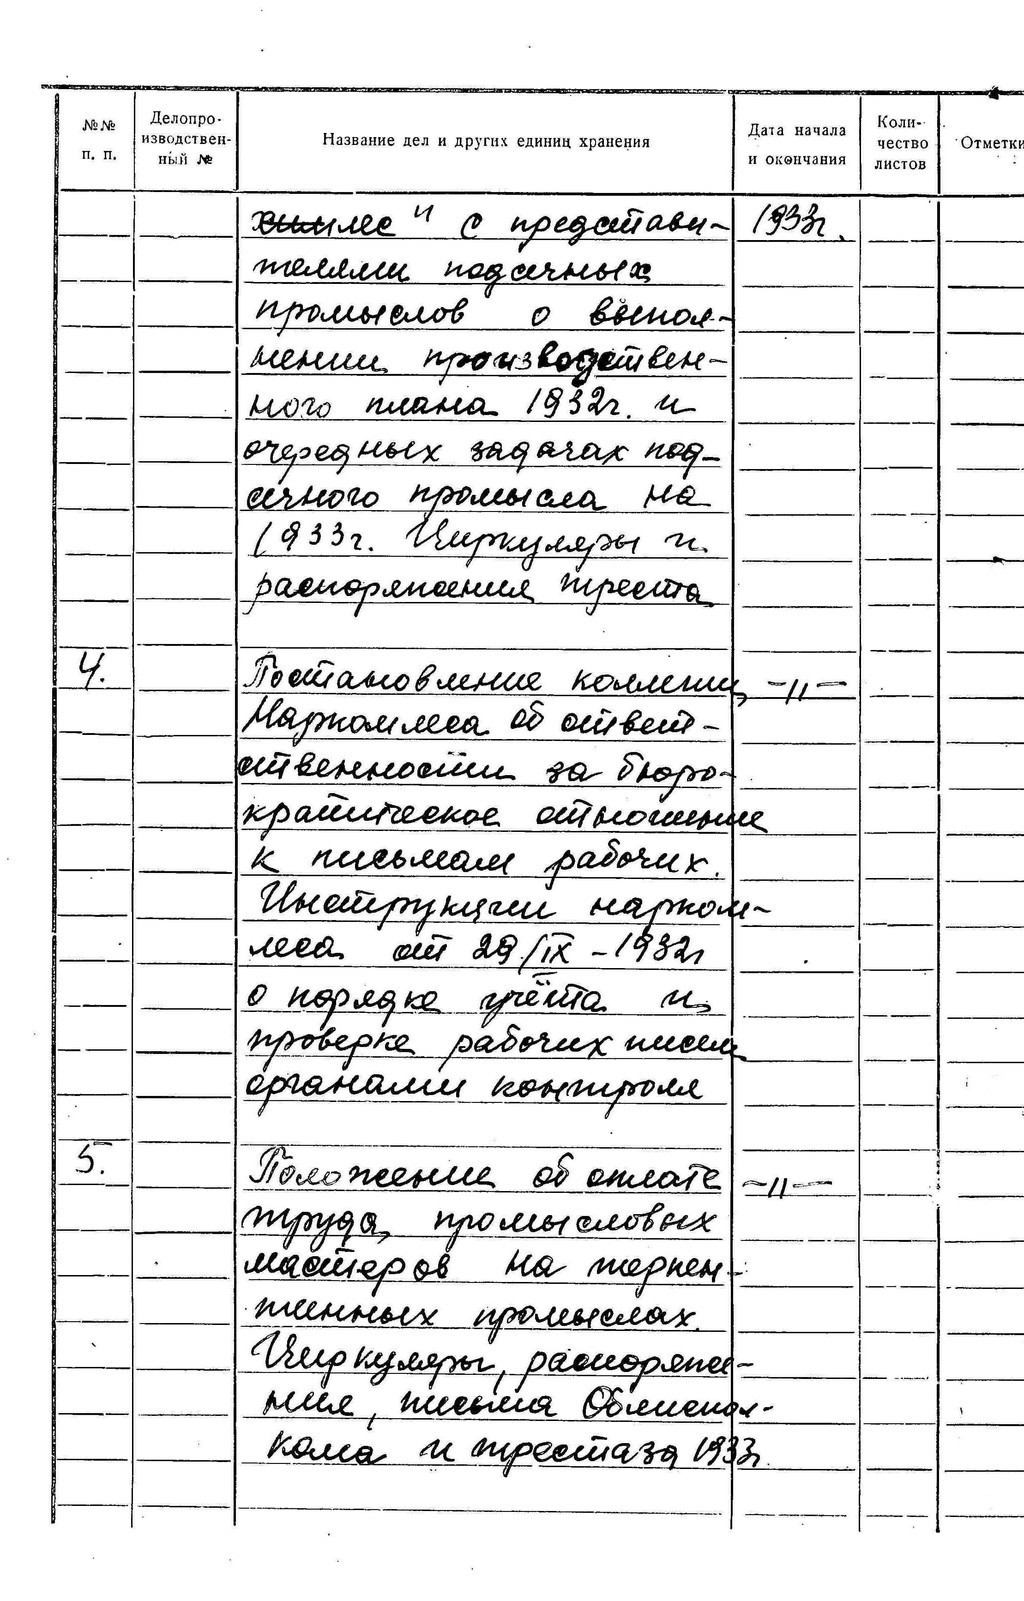 №№ п. п.
Делопро-
изводствен-
ный №
Название дел и других единиц хранения
Дата начала
и окончания
Коли-
чество
листов
Отметки
химлес" с представи- 1933г.
телями подсочных
промыслов о выпол-
нении производствен-
ного плана 1932г. и
очередных задачах под-
сочного промысла на
1933г. Циркуляры и
распоряжения треста
4. Постановление коллегии —"—
Наркомлеса об ответ-
ственности за бюро-
кратическое отношение
к письмам рабочих.
Инструкции нарком-
леса от 29/IX-1932г
о порядке учёта и
проверке рабочих писем
органами контроля
5. Положение об оплате —"—
труда промысловых
мастеров на терпен-
тинных промыслах.
Циркуляры, распоряже-
ния, письма Облиспол-
кома и треста за 1933г